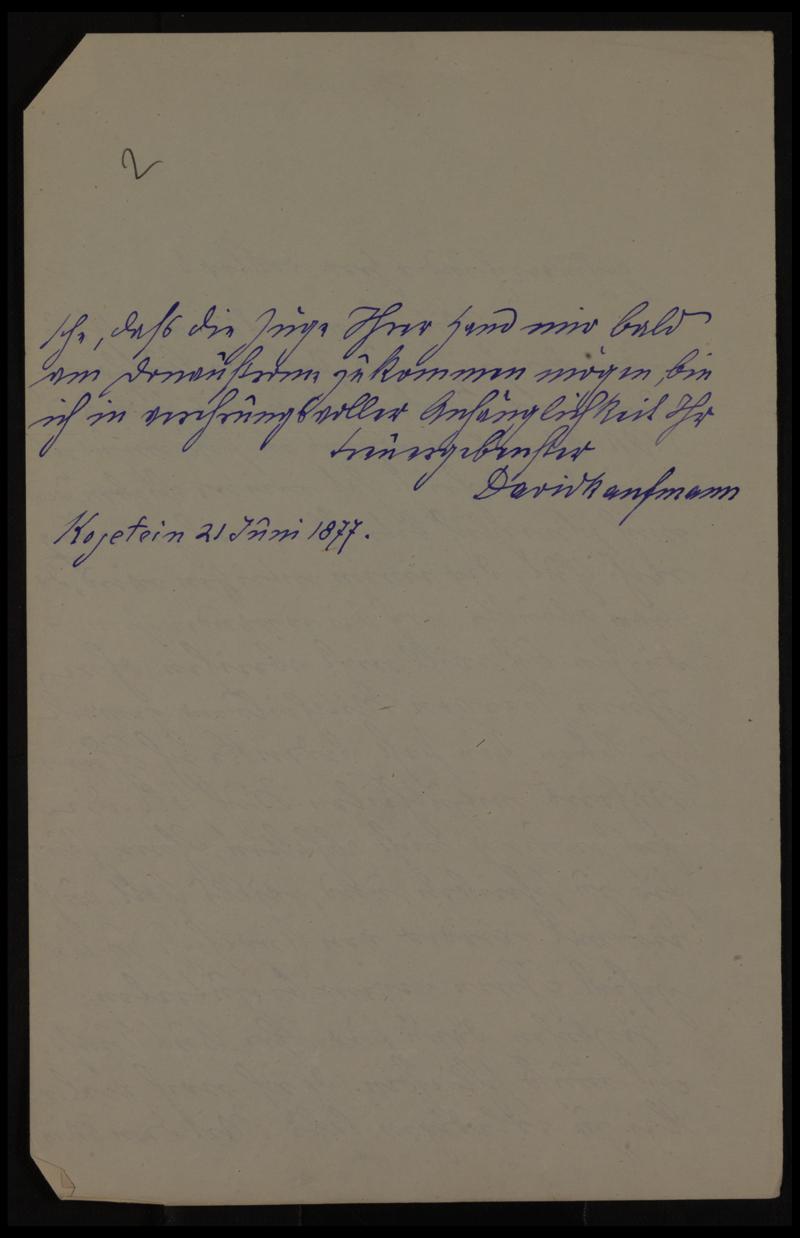 2
sche, daß die Züge Ihrer Hand mir bald
am Donaustrome zukommen mögen, bin
ich in verehrungsvoller Anhänglichkeit Ihr
treuergebenster
David Kaufmann
Kojetein 21 Juni 1877.